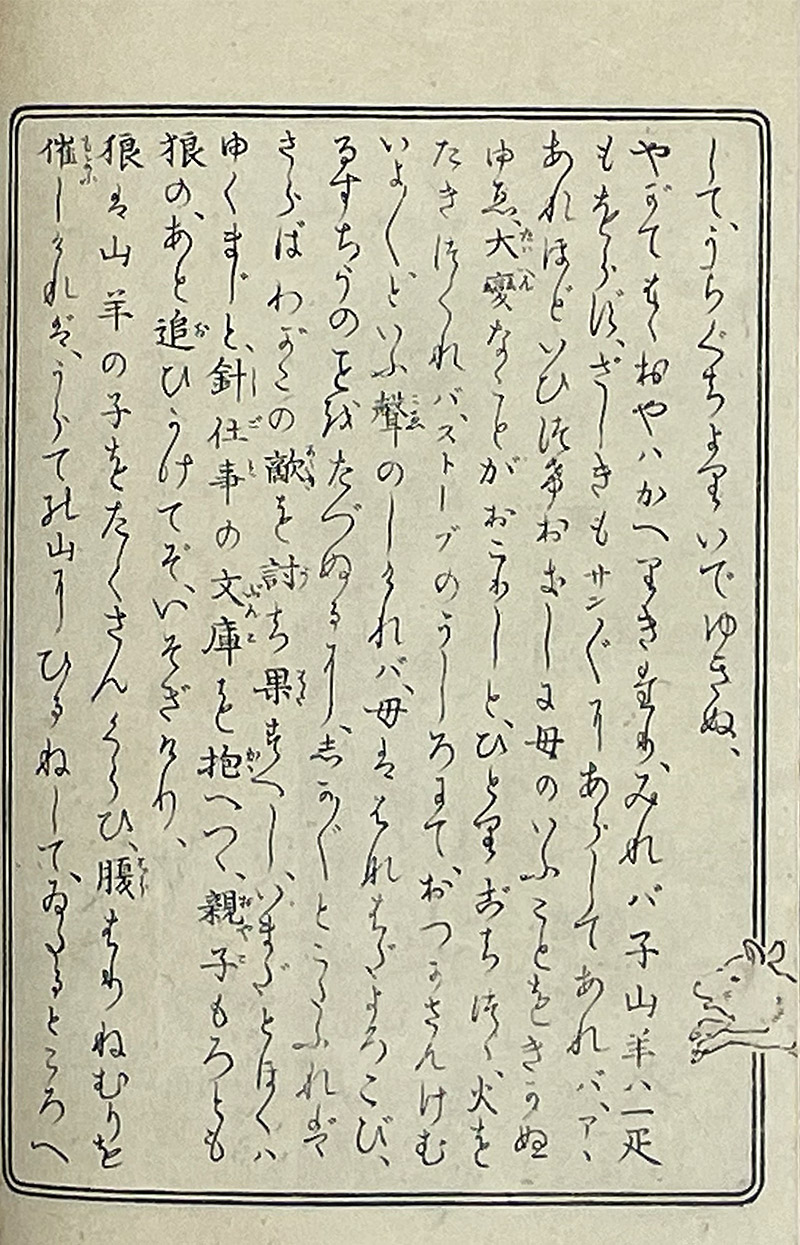 して、うらぐちよりいでゆきぬ、
やがてはゝおやハかへりきたり、みれバ子山羊ハ一疋
もをらず、ざしきもサン〴〵にあらしてあれバ、アヽ
あれほどいひつけおきしに母のいふことをきかぬ
ゆゑ、大變なことがおこりしと、ひとりごちつゝ、火を
たきつくれバ、ストーブのうしろにて、おつかさんけむ
いよ〳〵といふ聲のしければ、母はそれはとよろこび、
るすちうのことをたづぬるに、しか〴〵とこたふれば
さらばわがこの敵を討ち果すべし、いまだとほくハ
ゆくまじと、針仕事の文庫を抱へつゝ、親子もろとも
狼の、あと追ひかけてぞ、いそぎける、
狼は山羊の子をたくさんくらひ、腹はりねむりを
催しければ、うらて乃山にひるねして、ゐたるところへ